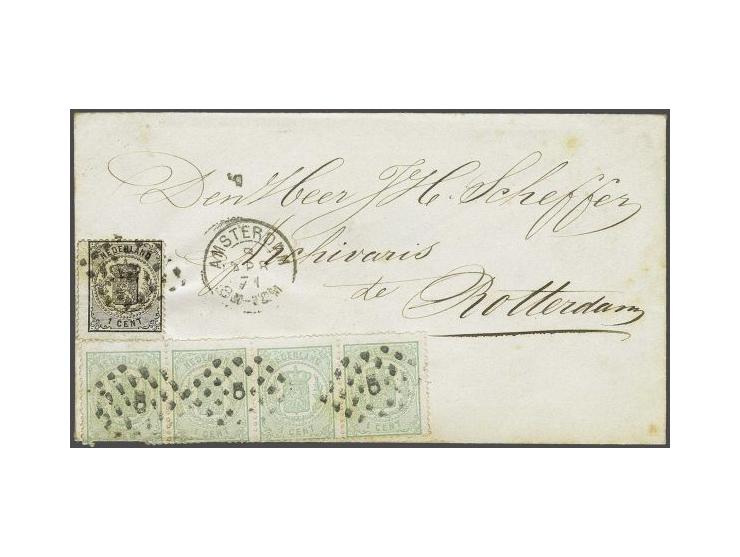 Den Heer J H. Scheffer
Archivaris
de Rotterdam
AMSTERDAM
8
APR
71
NEDERLAND
1 CENT
NEDERLAND
1 CENT
NEDERLAND
1 CENT
NEDERLAND
1 CENT
NEDERLAND
1 CENT
5
5
5
5